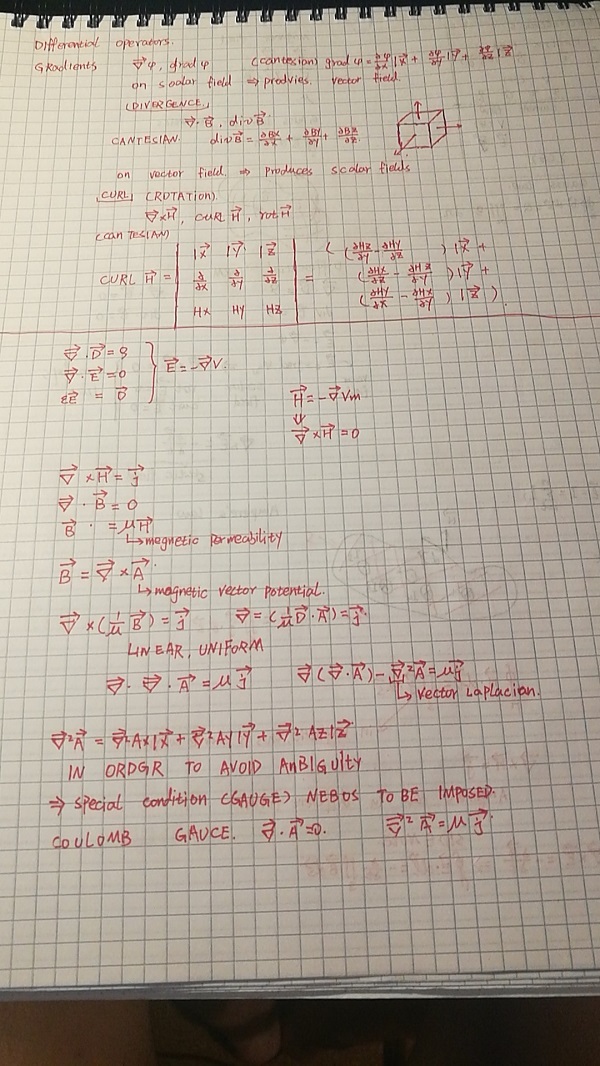 Differential operators.
GRadients ∇⃗φ, grad φ (cantesian) grad φ = ∂φ/∂x 1x⃗ + ∂φ/∂y 1y⃗ + ∂φ/∂z 1z⃗
on scalar field ⇒ produies vector field
(DIVERGENCE.)
∇⃗·B⃗, div B⃗
CANTESIAN. div B⃗ = ∂Bx/∂x + ∂By/∂y + ∂Bz/∂z.
on vector field ⇒ produces scalar fields
CURL (ROTATION).
∇⃗×H⃗, CURL H⃗, rot H⃗
(canTESIAN)
CURL H⃗ = | 1x⃗ 1y⃗ 1z⃗ | = ( (∂Hz/∂y - ∂Hy/∂z) 1x⃗ +
| ∂/∂x ∂/∂y ∂/∂z | (∂Hx/∂z - ∂Hz/∂y) 1y⃗ +
| Hx Hy Hz | (∂Hy/∂x - ∂Hx/∂y) 1z⃗ ).
∇⃗·D⃗ = ρ
∇⃗·E⃗ = 0 } E⃗ = -∇⃗V.
εE⃗ = D⃗
H⃗ = -∇⃗Vm
⇓
∇⃗×H⃗ = 0
∇⃗×H⃗ = j⃗
∇⃗·B⃗ = 0
B⃗· = μH⃗
↳magnetic permeability
B⃗ = ∇⃗×A⃗
↳magnetic vector potential.
∇⃗×(1/μ B⃗) = j⃗ ∇⃗ = (1/μ D⃗·A⃗) = j⃗.
LINEAR, UNIFORM
∇⃗·∇⃗·A⃗ = μj⃗ ∇⃗(∇⃗·A⃗) - ∇⃗²A⃗ = μj⃗
↳ vector Laplacian.
∇⃗²A⃗ = ∇⃗²Ax1x⃗ + ∇⃗²Ay1y⃗ + ∇⃗²Az1z⃗
IN ORDGR TO AVOID AnBIGUIty
⇒ special condition (GAUGE) NEBOS TO BE IMPOSED.
COULOMB GAUCE. ∇⃗·A⃗=0. ∇⃗²A⃗ = μj⃗.